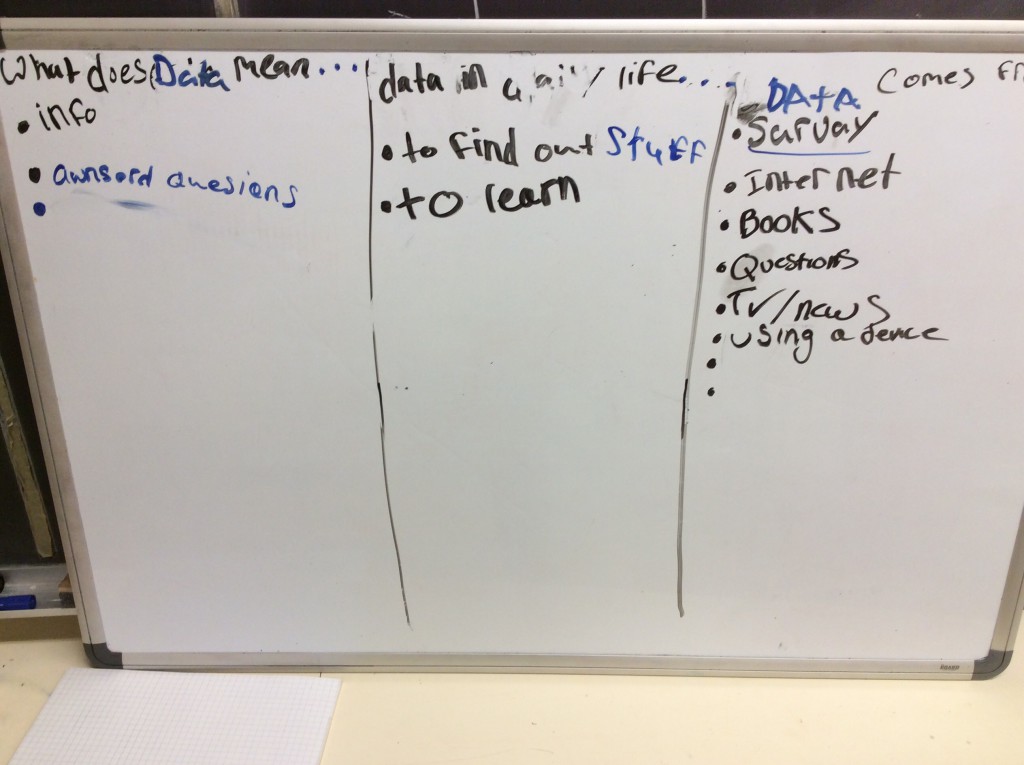 What does Data mean...
• info
• awnserd quesions
•
data in daily life...
• to find out Stuff
• to learn
DAtA Comes fr
• Survay
• Internet
• Books
• Questions
• TV/news
• using a device
•
•